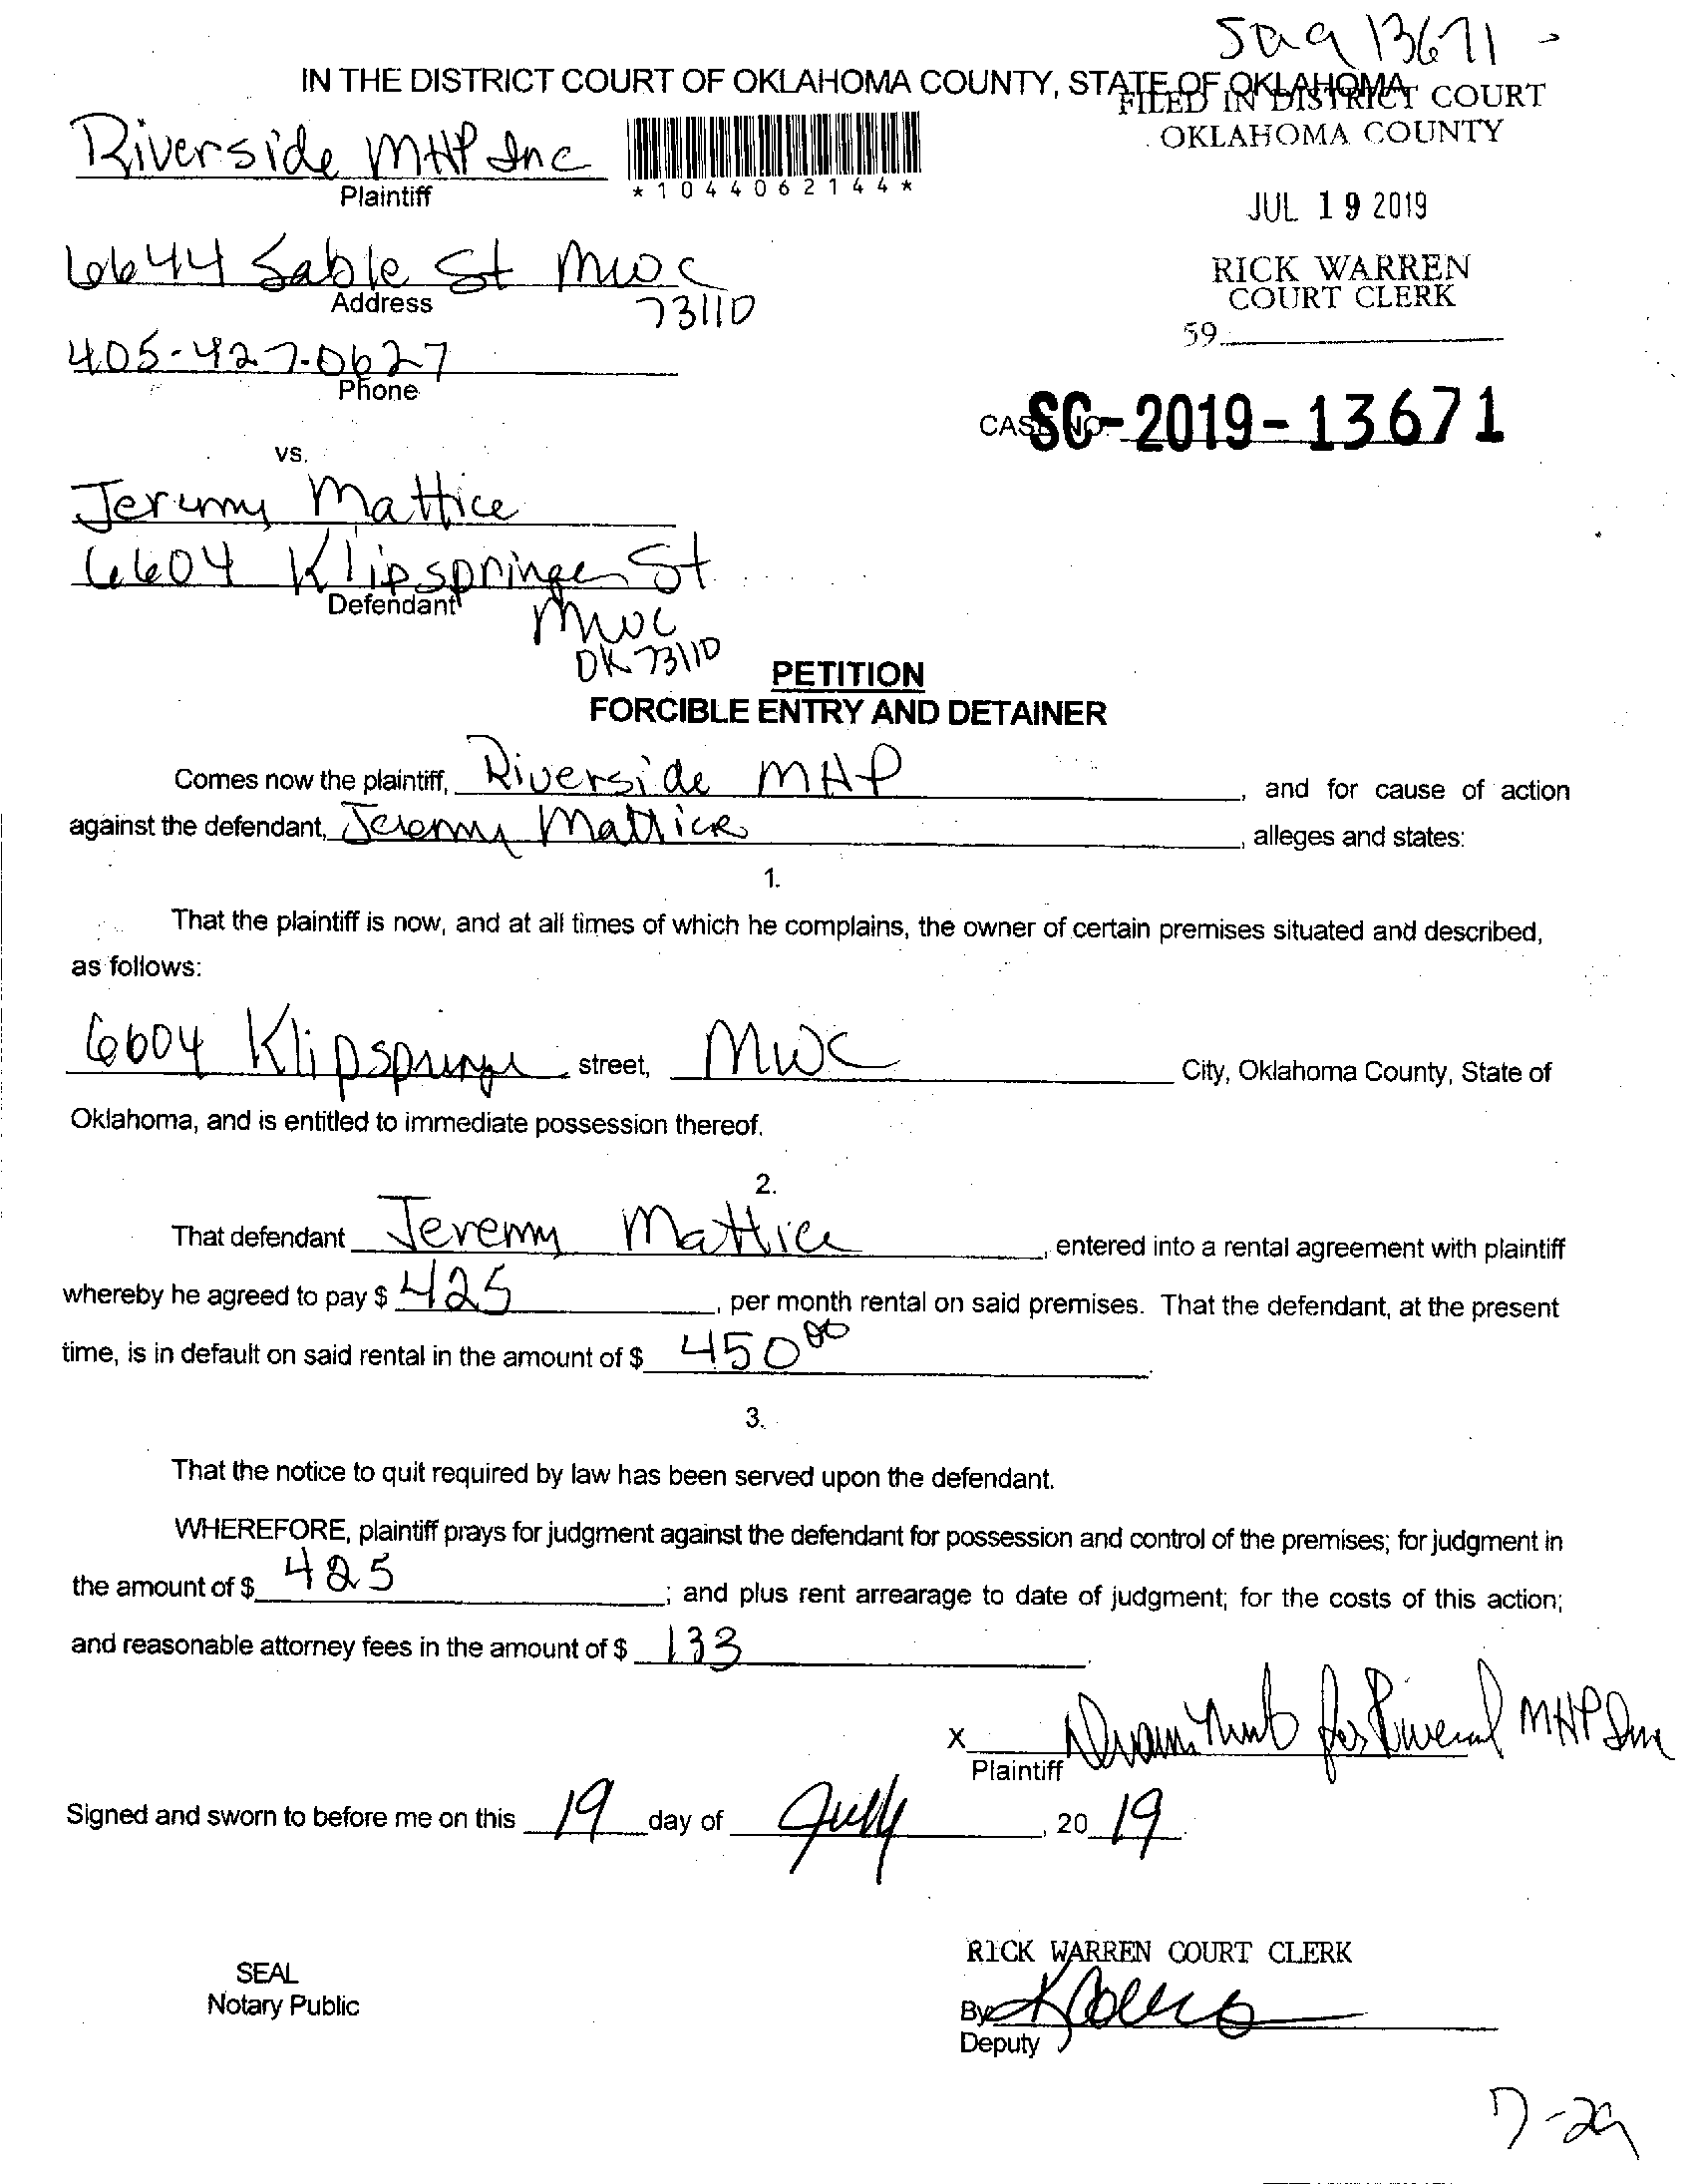 13671
IN THE DISTRICT COURT OF OKLAHOMA COUNTY, STATE OF OKLAHOMA
FILED IN DISTRICT COURT
OKLAHOMA COUNTY
Riverside MHP Inc
Plaintiff
*1044062144*
JUL 19 2019
6644 Sable St MWC
Address
73110
RICK WARREN
COURT CLERK
59
405-427-0627
Phone
CASE NO. SC-2019-13671
vs.
Jeremy Mattice
6604 Klipspringer St
Defendant
MWC
OK 73110
PETITION
FORCIBLE ENTRY AND DETAINER
Comes now the plaintiff, Riverside MHP, and for cause of action
against the defendant, Jeremy Mattice, alleges and states:
1.
That the plaintiff is now, and at all times of which he complains, the owner of certain premises situated and described,
as follows:
6604 Klipspringe street, MWC City, Oklahoma County, State of
Oklahoma, and is entitled to immediate possession thereof.
2.
That defendant Jeremy Mattice, entered into a rental agreement with plaintiff
whereby he agreed to pay $ 425, per month rental on said premises. That the defendant, at the present
time, is in default on said rental in the amount of $ 450 00.
3.
That the notice to quit required by law has been served upon the defendant.
WHEREFORE, plaintiff prays for judgment against the defendant for possession and control of the premises; for judgment in
the amount of $ 425; and plus rent arrearage to date of judgment; for the costs of this action;
and reasonable attorney fees in the amount of $ 133.
X for MHP Inc
Plaintiff
Signed and sworn to before me on this 19 day of July, 20 19.
RICK WARREN COURT CLERK
SEAL
Notary Public
By
Deputy
7-29